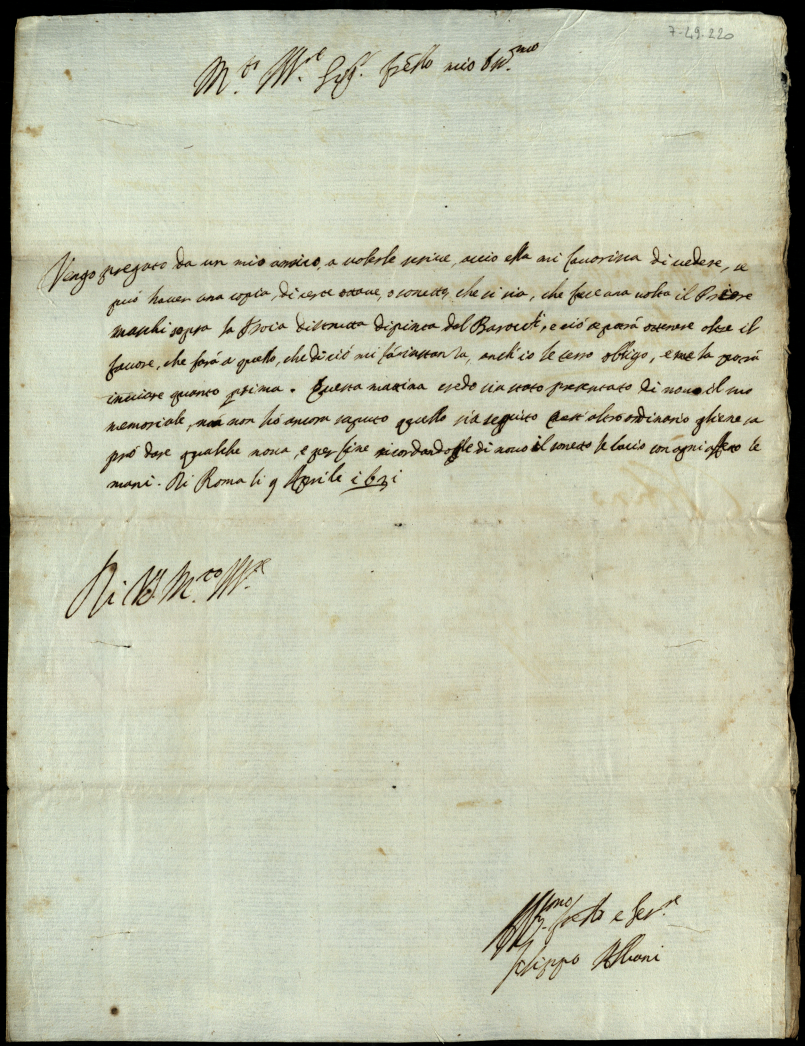 7-29-220
M.to Ill.re Sig.r fr̃ello mio Oss.mo
Vengo pregato da un mio amico, a volerle scrivere, acciò ella mi favorisca di vedere, se
può haver una copia, di certe ottave, o sonetto, che si sia, che fece una volta il Priore
Maschi sopra la Troia distrutta dipinta dal Barocci, e ciò se potrà ottenere oltre il
favore, che farà a quello, che di ciò mi fà instanza, anch'io le terrò obligo, e me la potrà
inviare quanto prima. Questa mattina credo sia stato presentato di novo il suo
memoriale, mà non hò ancora saputo quello sia seguito quest'altro ordinario gliene sa
prò dare qualche nova, e per fine ricordandogle di novo il sonetto le bacio con ogni affetto le
mani. Di Roma li 9 Aprile 1631
Di V.S. M.to Ill.re
fr̃ello e Ser.re
Filippo Albani